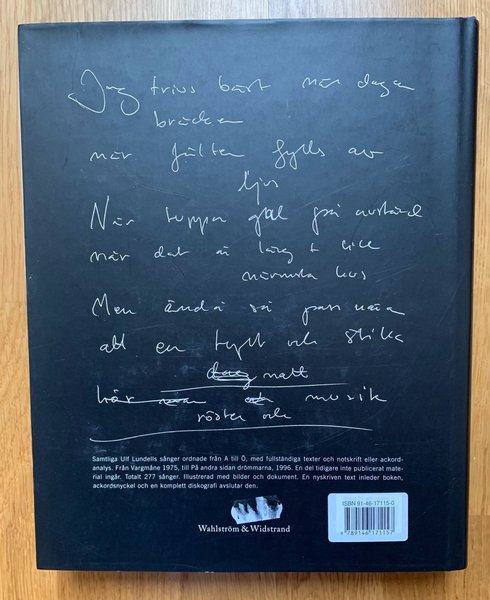 Jag trivs bäst när dagen
bräcker
när fälten fylls av
ljus
När tuppar gal på avstånd
när det är långt t ill
närmsta hus
Men ändå så pass nära
att en tyst och stilla
natt
hör man musik
röster och
Samtliga Ulf Lundells sånger ordnade från A till Ö, med fullständiga texter och notskrift eller ackord-
analys. Från Vargmåne 1975, till På andra sidan drömmarna, 1996. En del tidigare inte publicerat mate-
rial ingår. Totalt 277 sånger. Illustrerad med bilder och dokument. En nyskriven text inleder boken,
ackordsnyckel och en komplett diskografi avslutar den.
Wahlström & Widstrand
ISBN 91-46-17115-0
9 789146 171157